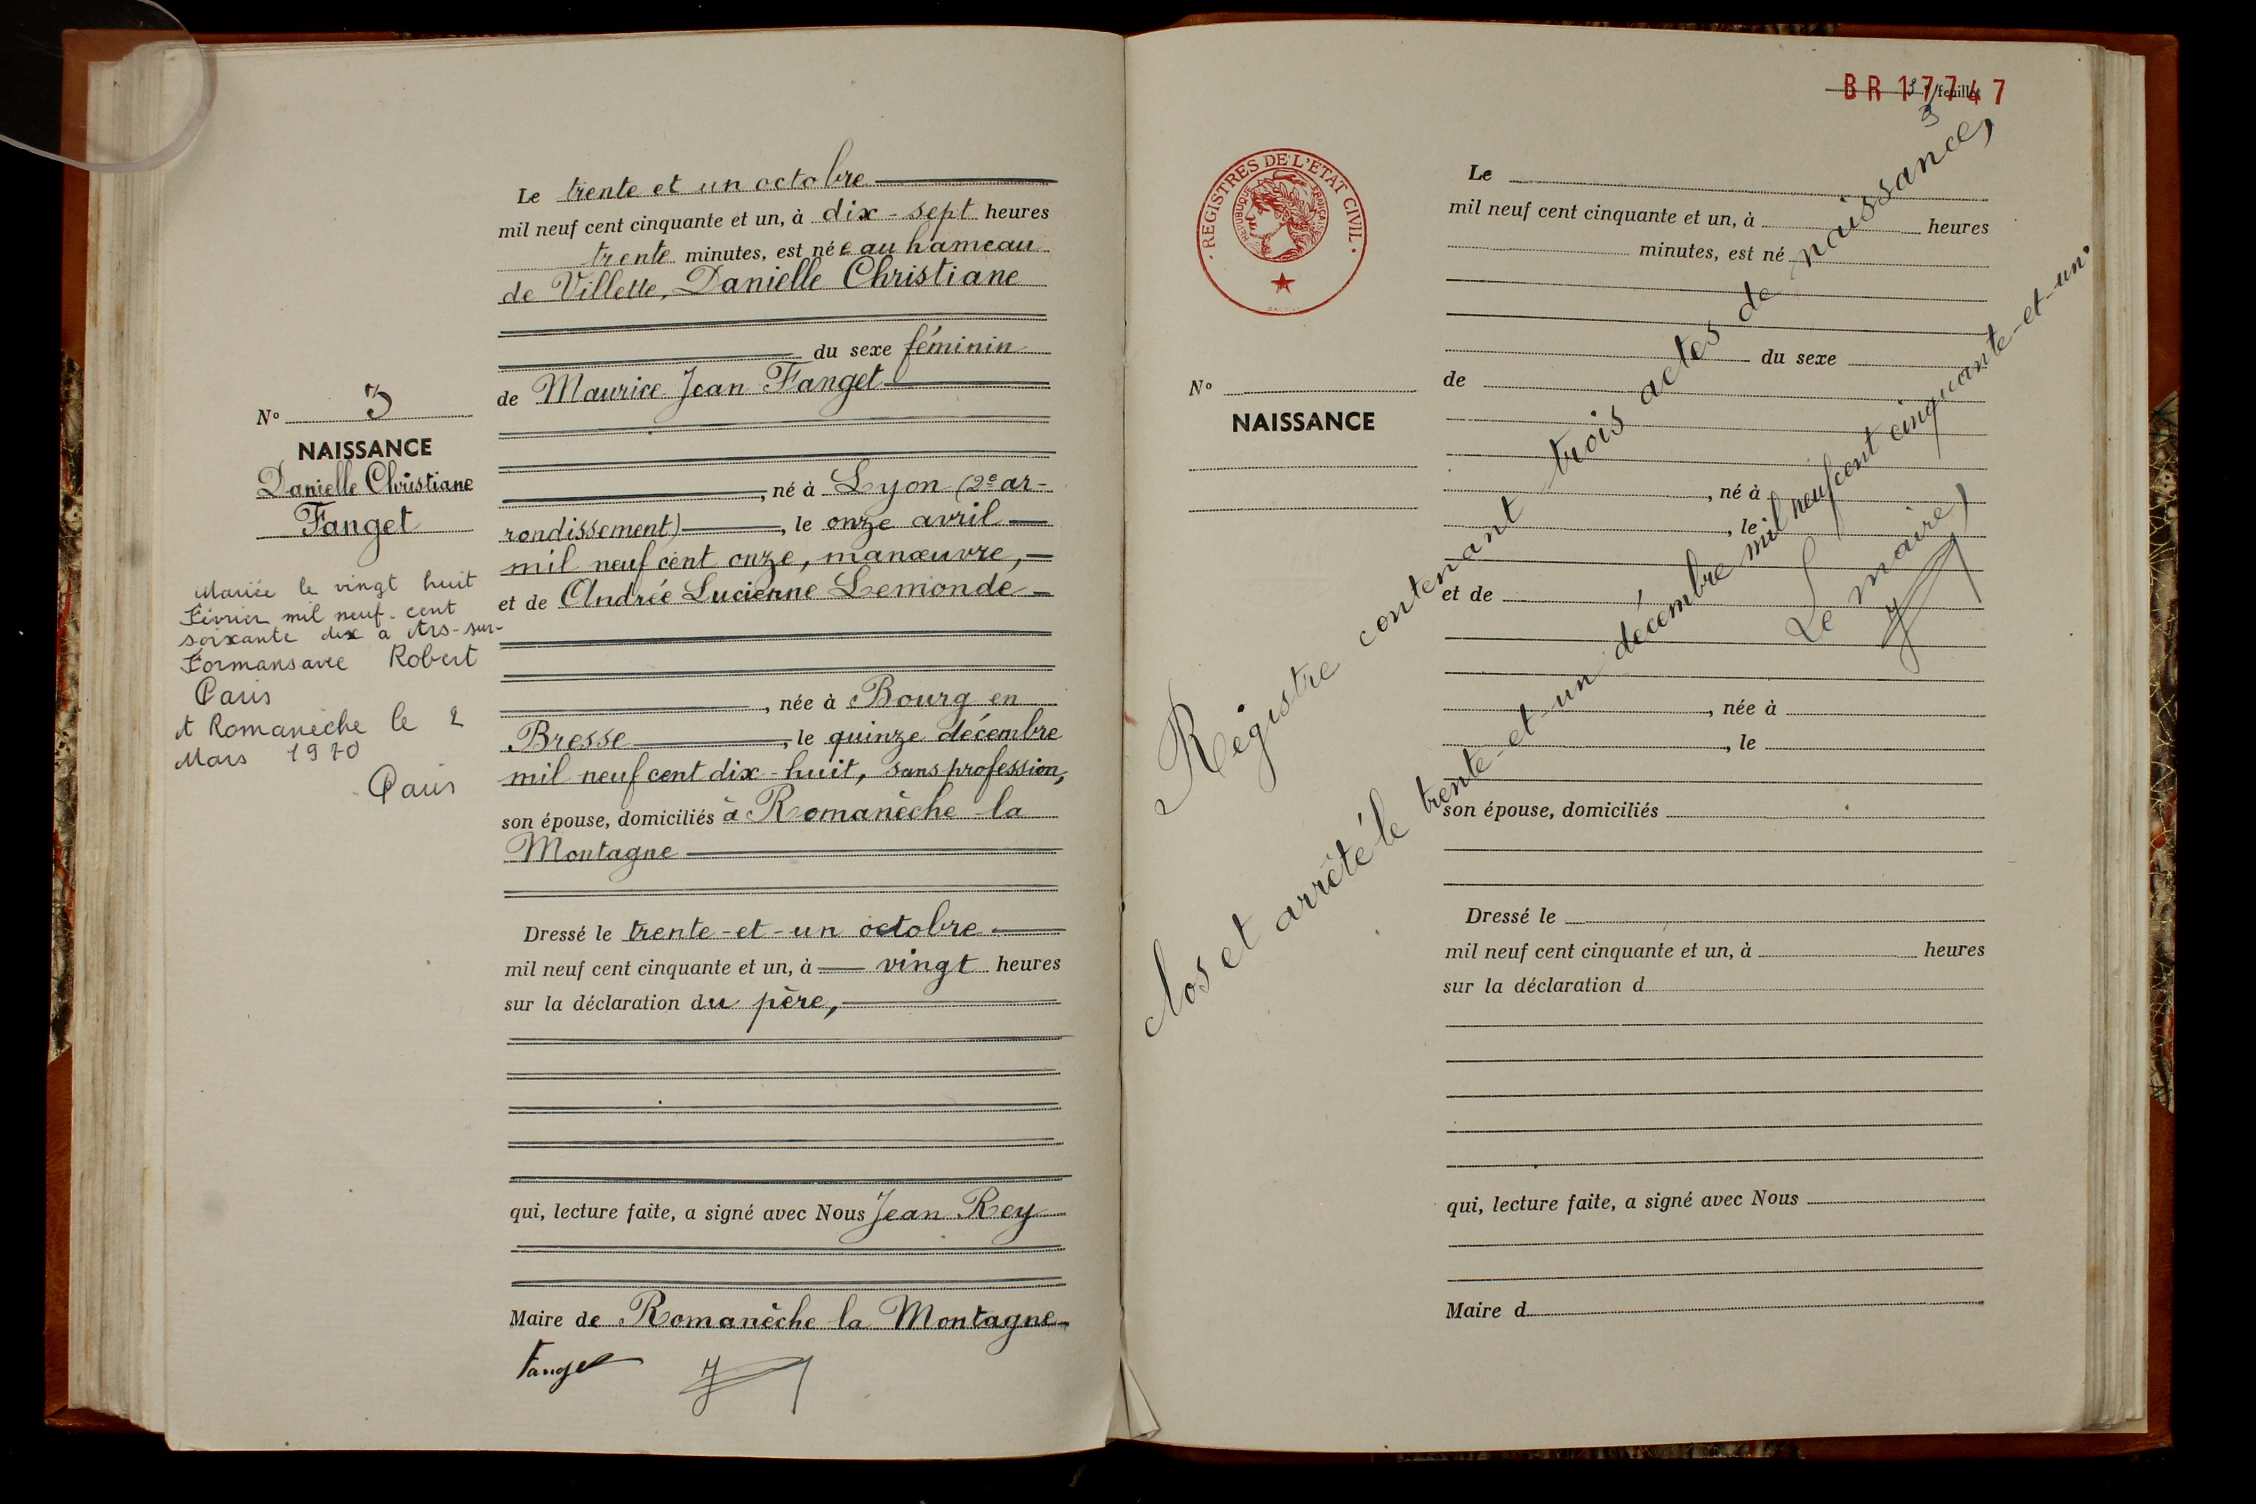 Le trente et un octobre
mil neuf cent cinquante et un, à dix-sept heures
trente minutes, est née au hameau
de Villette, Danielle Christiane
du sexe féminin
de Maurice Jean Fanget
, né à Lyon (2e ar-
rondissement), le onze avril
mil neuf cent onze, manœuvre,
et de Andrée Lucienne Lemonde
, née à Bourg en
Bresse, le quinze décembre
mil neuf cent dix-huit, sans profession,
son épouse, domiciliés à Romanèche la
Montagne
Dressé le trente-et-un octobre
mil neuf cent cinquante et un, à vingt heures
sur la déclaration du père,
qui, lecture faite, a signé avec Nous Jean Rey
Maire de Romanèche la Montagne
Fanget
No 3
NAISSANCE
Danielle Christiane
Fanget
Mariée le vingt huit
Février mil neuf-cent
soixante dix à Ars-sur-
Formans avec Robert
Paris
A Romanèche le 2
Mars 1970
Paris
BR 17747
feuille
3
REGISTRES DE L'ETAT CIVIL
REPUBLIQUE FRANÇAISE
Le
mil neuf cent cinquante et un, à heures
minutes, est né
du sexe
No
NAISSANCE
de
, né à
, le
et de
, née à
, le
son épouse, domiciliés
Dressé le
mil neuf cent cinquante et un, à heures
sur la déclaration d
qui, lecture faite, a signé avec Nous
Maire d
Régistre contenant trois actes de naissance,
clos et arrêté le trente-et-un décembre mil neuf cent cinquante-et-un.
Le maire,